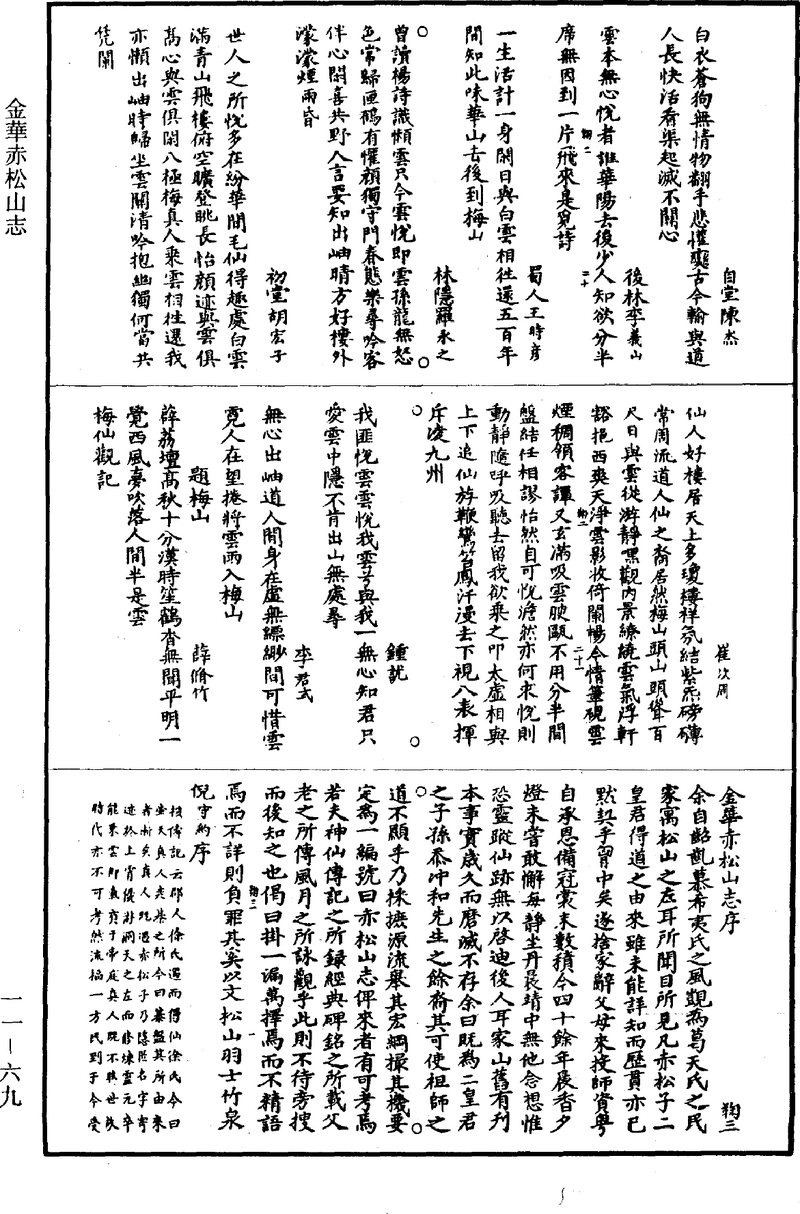 金華赤松山志
一一—六九
自堂陳杰
白衣蒼狗無情物翻手悲懽變古今輸與道
人長快活看渠起滅不關心
後林李義山
雲本無心悅者誰華陽去後少人知欲分半
席無因到一片飛來是覓詩
蜀人王時彥
一生活計一身閑日與白雲相往還五百年
間知此味華山去後到梅山
林隱羅永之
曾讀楊詩識懶雲只今雲悅即雲孫龍無怒
色常歸匣鶴有懽顏獨守門春態樂尋吟客
伴心閑喜共野人言要知出岫晴方好樓外
濛濛煙雨昏
初堂胡宏子
世人之所悅多在紛華間毛仙得趣處白雲
滿青山飛樓俯空曠登眺長怡顏迹與雲俱
高心與雲俱閑八極梅真人乘雲相往還我
亦懶出岫時歸坐雲關清吟抱幽獨何當共
凭闌
崔次周
仙人好樓居天上多瓊樓祥氛結紫炁磅礴
常周流道人仙之裔居然梅山頭山頭聳百
尺日與雲從游靜嘿觀內景繚繞雲氣浮軒
豁挹西爽天淨雲影收倚闌暢今情筆硯雲
煙稠領客譚又玄滿吸雲腴甌不用分半間
盤結任相謬怡然自可悅澹然亦何求悅則
動靜隨呼吸聽去留我欲乘之叩太虛相與
上下追仙斿鞭鸞笞鳳汗漫去下視八表揮
斥凌九州
鍾訧
我匪悅雲雲悅我雲兮與我一無心知君只
愛雲中隱不肯出山無處尋
李君式
無心出岫道人閑身在虛無縹緲間可惜雲
霓人在望捲將雲雨入梅山
題梅山
薛脩竹
薜荔壇高秋十分漢時笙鶴杳無聞平明一
覺西風夢吹落人間半是雲
梅仙觀記
金華赤松山志序
鞠三
余自齠齔慕希夷氏之風覬為葛天氏之民
家寓松山之左耳所聞目所見凡赤松子二
皇君得道之由來雖未能詳知而歷貫亦已
默契乎胷中矣遂捨家辭父母來授師資粤
自承恩備冠裳末數積今四十餘年晨香夕
燈未嘗敢懈每靜坐丹扆靖中無他念想惟
恐靈蹤仙跡無以啓迪後人耳家山舊有刊
本事實歲久而磨滅不存余曰既為二皇君
之子孫忝冲和先生之餘裔其可使祖師之
道不顯乎乃採摭源流舉其宏綱撮其機要
定為一編號曰赤松山志俾來者有可考焉
若夫神仙傳記之所錄經典碑銘之所載父
老之所傳風月之所詠觀乎此則不待旁搜
而後知之也偈曰掛一漏萬擇焉而不精語
焉而不詳則負罪其奚以文松山羽士竹泉
倪守約序
按傳記云郡人徐氏遇而得仙徐氏今曰
能乘雲即
時代亦不可考然流福一方民到于今受